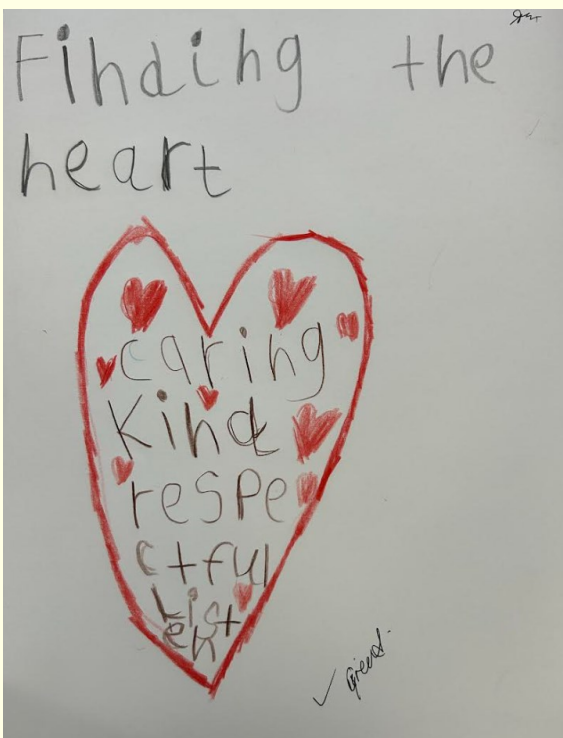 Finding the
heart
caring
Kind
respe
ctful
List
en